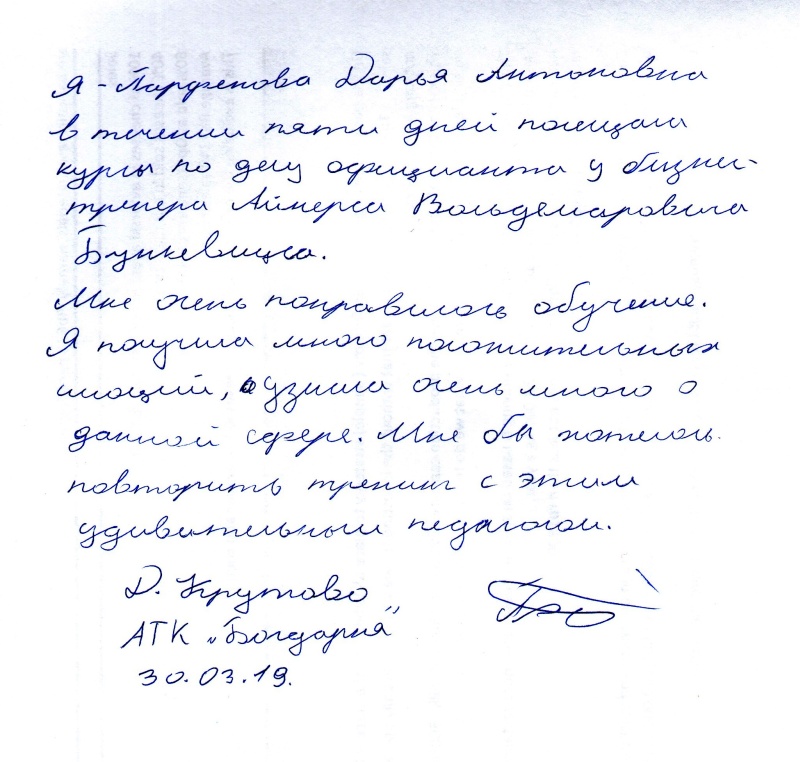 Я - Парфенова Дарья Антоновна
в течении пяти дней посещала
курсы по делу официанта у бизнес-
тренера Айнерса Вольдемаровича
Бункевицса.
Мне очень понравилось обучение.
Я получила много положительных
эмоций, узнала очень много о
данной сфере. Мне бы хотелось
повторить тренинг с этим
удивительным педагогом.
Д. Крутово
АТК „Богдарня"
30.03.19.